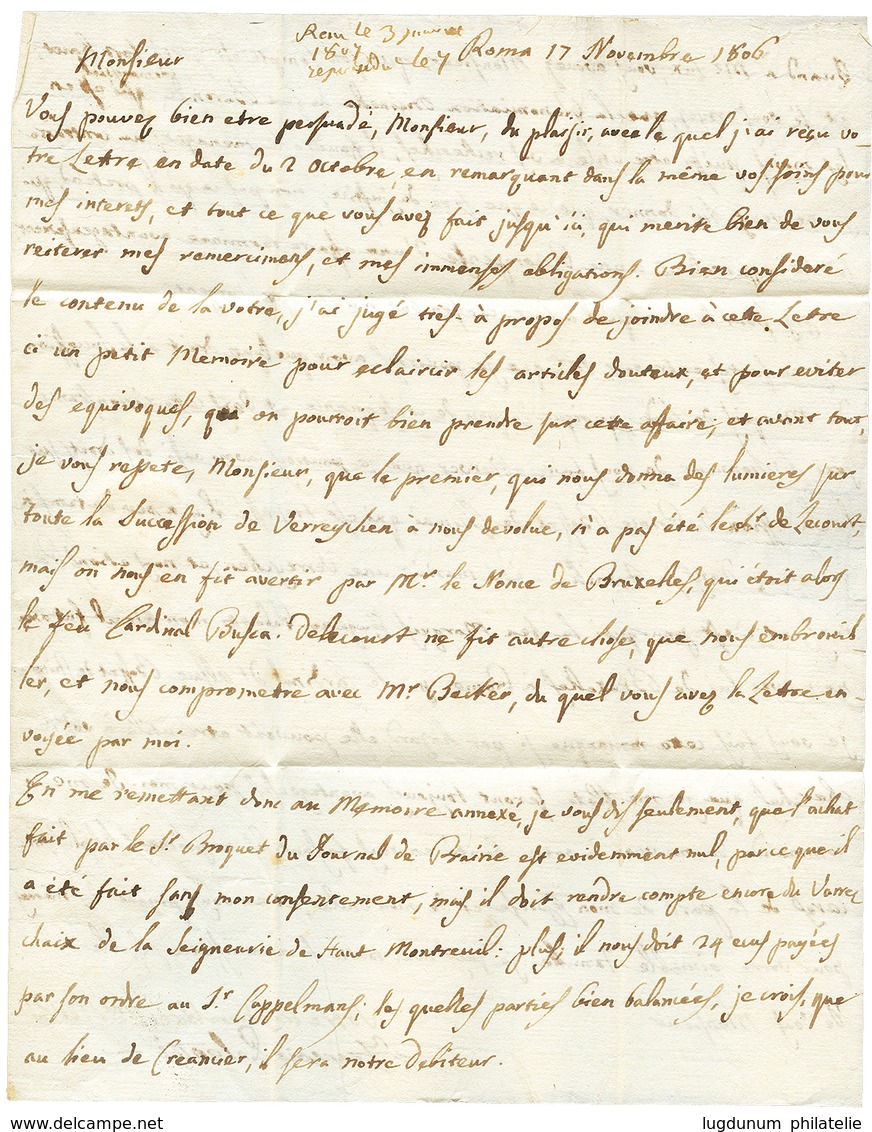 Recu le 3 janvier
1807
repondu le 7
Roma 17 Novembre 1806
Monsieur
Vous pouvez bien etre persuadé, Monsieur, du plaisir, avec le quel j'ai reçu vo-
tre Lettre en date du 2 Octobre, en remarquant dans la même vos soins pour
mes interets, et tout ce que vous avez fait jusqu'ici, qui merite bien de vous
reiterer mes remercimens, et mes immenses obligations. Bien consideré
le contenu de la votre, j'ai jugé tres-à propos de joindre à cette Lettre
ci un petit Memoire pour eclaircir les articles douteux, et pour eviter
des equivoques, qu'on pourroit bien prendre sur cette affaire; et avant tout,
je vous repete, Monsieur, que le premier, qui nous donna des lumieres sur
toute la Succession de Verreychen à nous devolue, n'a pas été le Sr. de Lecourt,
mais on nous en fit avertir par Mr. le Nonce de Bruxelles, qui étoit alors
le feu Cardinal Busca. Delecourt ne fit autre chose, que nous embrouil-
ler, et nous comprometre avec Mr Becker, du quel vous avez la Lettre en-
voyée par moi.
En me remettant donc au Memoire annexé, je vous dis seulement, que l'achat
fait par le Sr. Broquet du Journal de Brairie est evidemment nul, parce que il
a été fait sans mon consentement, mais il doit rendre compte encore du Varre
chaix de la Seigneurie de Haut Montreuil: plus, il nous doit 24 ecus payées
par son ordre au Sr Cappelmans; les quelles parties bien balancées, je crois, que
au lieu de Creancier, il sera notre debiteur.
www.delcampe.net
lugdunum philatelie